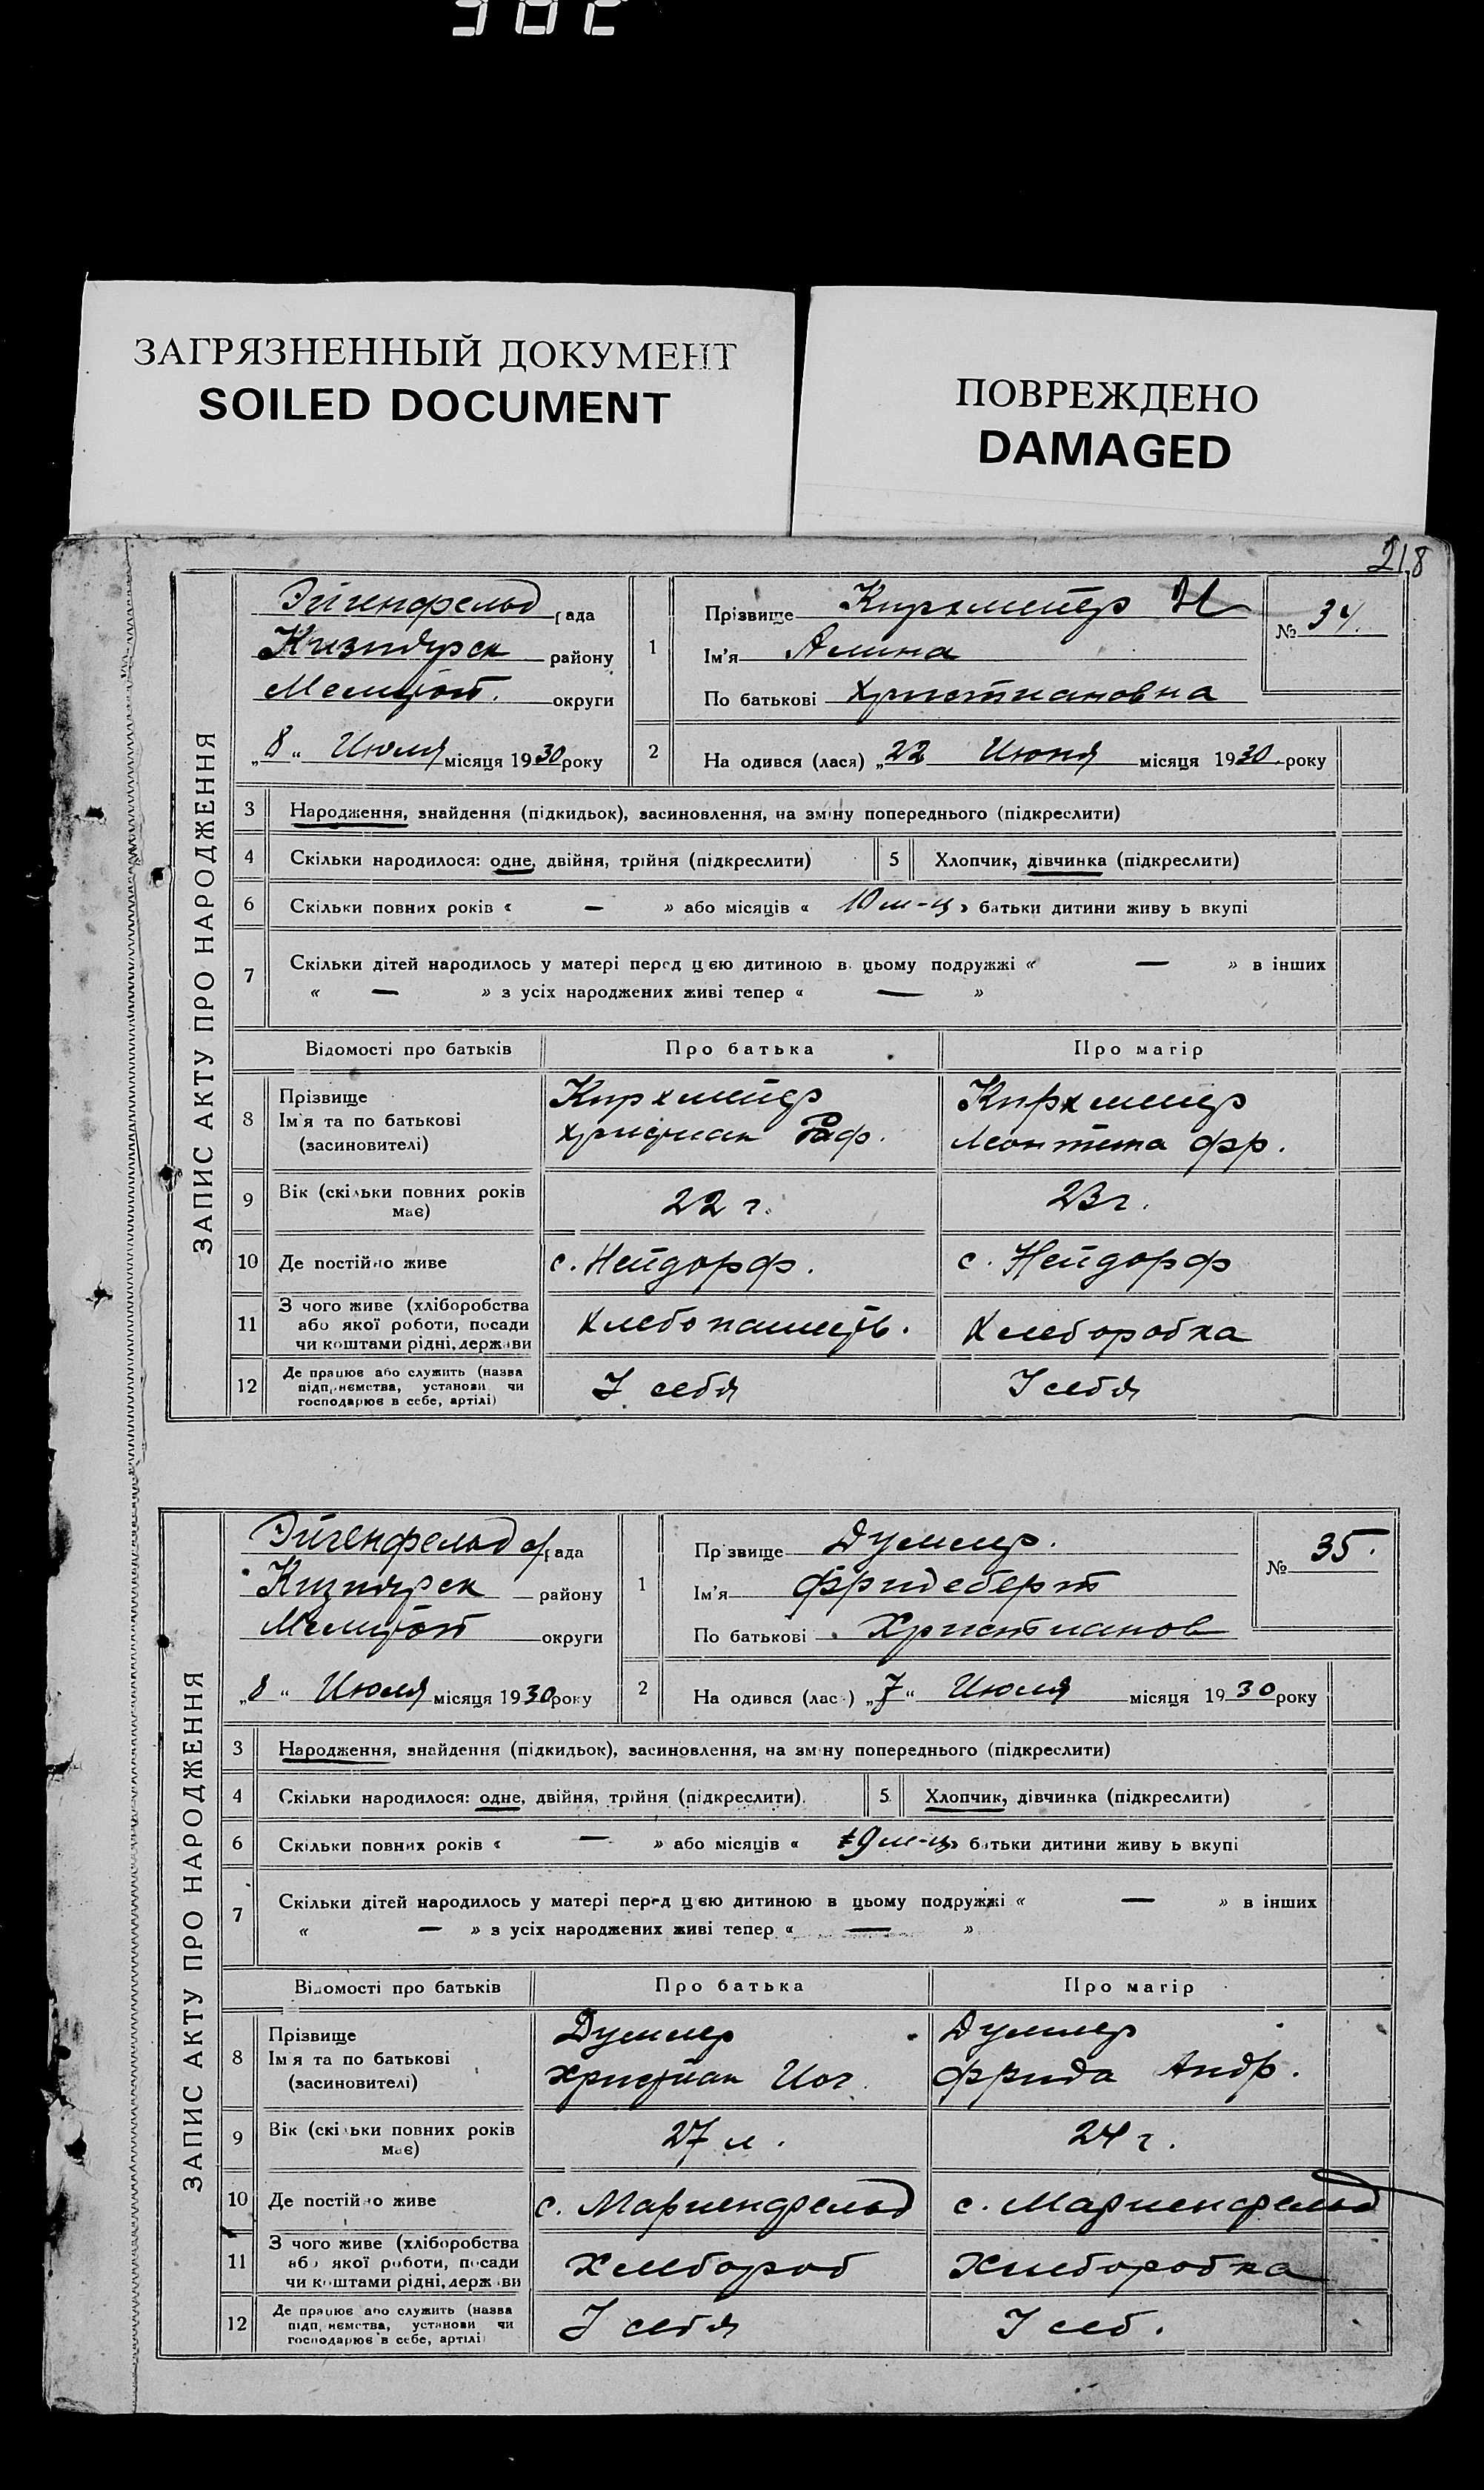 ЗАГРЯЗНЕННЫЙ ДОКУМЕНТ
SOILED DOCUMENT
ПОВРЕЖДЕНО
DAMAGED
218
ЗАПИС АКТУ ПРО НАРОДЖЕННЯ
Эйгенфельд рада
Кизиярск району
Мелитоп. округи
„8“ Июля місяця 1930 року
1 Прізвище Кирхмейер
Ім'я Алина
По батькові Христиановна
№ 34.
2 На одився (лася) „22 Июня місяця 1930 року
3 Народження, знайдення (підкидьок), засиновлення, на зміну попереднього (підкреслити)
4 Скільки народилося: одне, двійня, трійня (підкреслити) 5 Хлопчик, дівчинка (підкреслити)
6 Скільки повних років « — » або місяців « 10 м-ц » батьки дитини живу ь вкупі
7 Скільки дітей народилось у матері перед цією дитиною в цьому подружжі « — » в інших
« — » з усіх народжених живі тепер « — »
Відомості про батьків Про батька Про матір
8 Прізвище Ім'я та по батькові (засновителі)
Кирхмейер Христиан Раф.
Кирхмейер Леонтина Фр.
9 Вік (скільки повних років має) 22 г. 23 г.
10 Де постійно живе с. Нейдорф. с. Нейдорф
11 З чого живе (хліборобства або якої роботи, посади чи коштами рідні, держави
Хлебопашеств. Хлеборобка
12 Де працює або служить (назва підприємства, установи чи господарює в себе, артілі)
У себя У себя
ЗАПИС АКТУ ПРО НАРОДЖЕННЯ
Эйгенфельд с/рада
Кизиярск району
Мелитоп округи
„8“ Июля місяця 1930 року
1 Прізвище Думлер.
Ім'я Фридеберт
По батькові Христианов
№ 35.
2 На одився (лас ) „7“ Июля місяця 1930 року
3 Народження, знайдення (підкидьок), засиновлення, на зміну попереднього (підкреслити)
4 Скільки народилося: одне, двійня, трійня (підкреслити). 5 Хлопчик, дівчинка (підкреслити)
6 Скільки повних років « — » або місяців « 9 м-ц » батьки дитини живу ь вкупі
7 Скільки дітей народилось у матері перед цією дитиною в цьому подружжі « — » в інших
« — » з усіх народжених живі тепер « — »
Відомості про батьків Про батька Про матір
8 Прізвище Ім'я та по батькові (засиновителі)
Думлер Христиан Иог.
Думлер Фрида Андр.
9 Вік (скільки повних років має) 27 л. 24 г.
10 Де постійно живе с. Мариенфельд с. Мариенфельд
11 З чого живе (хліборобства або якої роботи, посади чи коштами рідні, держави
Хлебороб Хлеборобка
12 Де працює або служить (назва підприємства, установи чи господарює в себе, артілі)
У себя У себ.